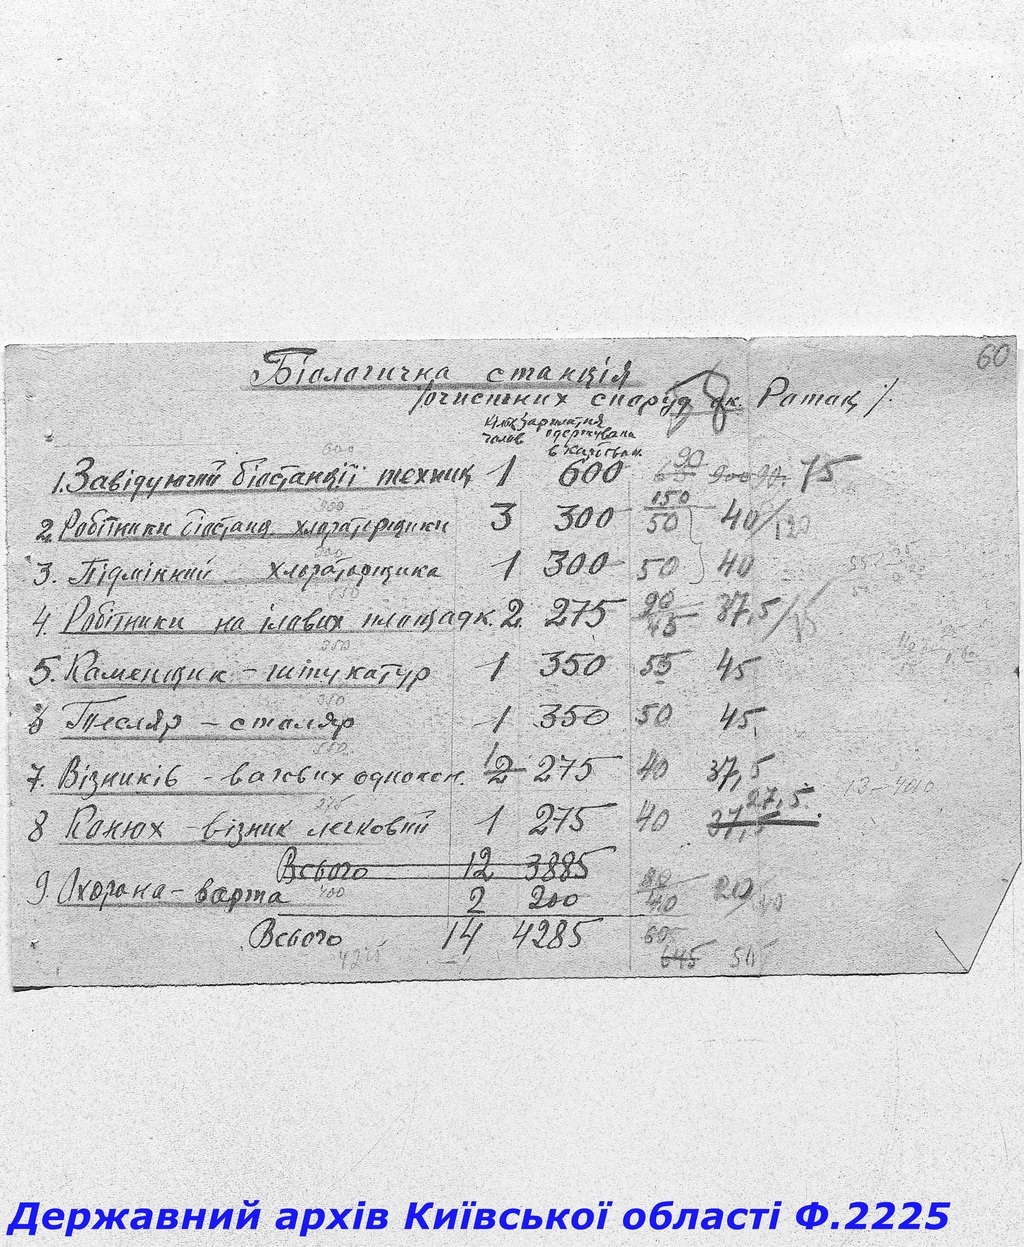 60
Біологична станція
/очистних споруд
Кільк. Зарплатня
чолов одержувана
600
1. Завідуючий біостанції технік 1 600 90 75
300
2. Робітники біостанц. хлораторщики 3 300 150 50 40/120
300
3. Підмінний хлораторщика 1 300 50 40
4. Робітники на ілових площадк. 2 275 90 45 37,5/
350
5. Каменщик - штукатур 1 350 55 45
350
6 Тесляр - столяр 1 350 50 45
7. Візників - вагових однокон. 2 275 40 37,5
13-4010
275
27,5.
8 Конюх - візник легковий 1 275 40 37,5
Всього 12 3885
9. Охорона - варта 2 200 80 40 20/40
400
Всього 14 4285 605
645
Державний архів Київської області Ф.2225